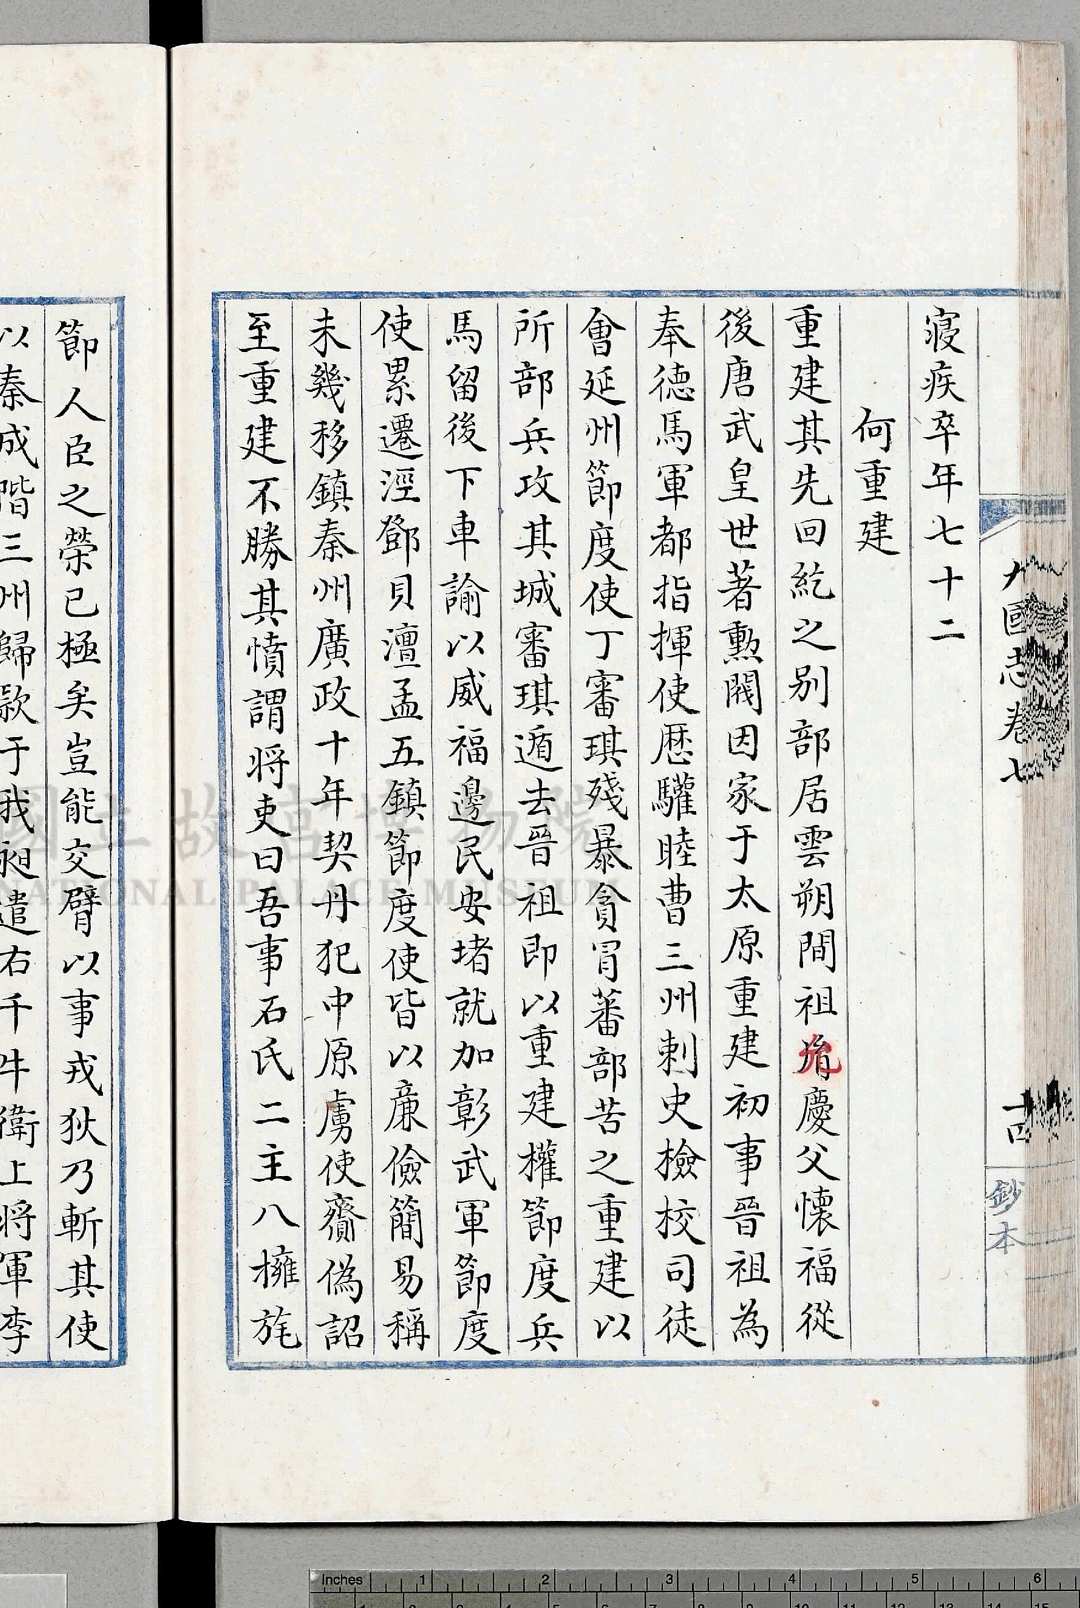 九國志卷七
十四
鈔本
寢疾卒年七十二
何重建
重建其先回紇之別部居雲朔間祖胤慶父懷福從
後唐武皇世著勲閥因家于太原重建初事晉祖為
奉德馬軍都指揮使歷驩睦曹三州刺史檢校司徒
會延州節度使丁審琪殘暴貪冒蕃部苦之重建以
所部兵攻其城審琪遁去晉祖即以重建權節度兵
馬留後下車諭以威福邊民安堵就加彰武軍節度
使累遷涇鄧貝澶孟五鎮節度使皆以亷儉簡易稱
未幾移鎮秦州廣政十年契丹犯中原虜使齎偽詔
至重建不勝其憤謂將吏曰吾事石氏二主八擁旄
節人臣之榮已極矣豈能交臂以事戎狄乃斬其使
以秦成階三州歸款于我昶遣右千牛衛上將軍李
國立故宮博物院
NATIONAL PALACE MUSEUM
Inches 1 2 3 4 5 6